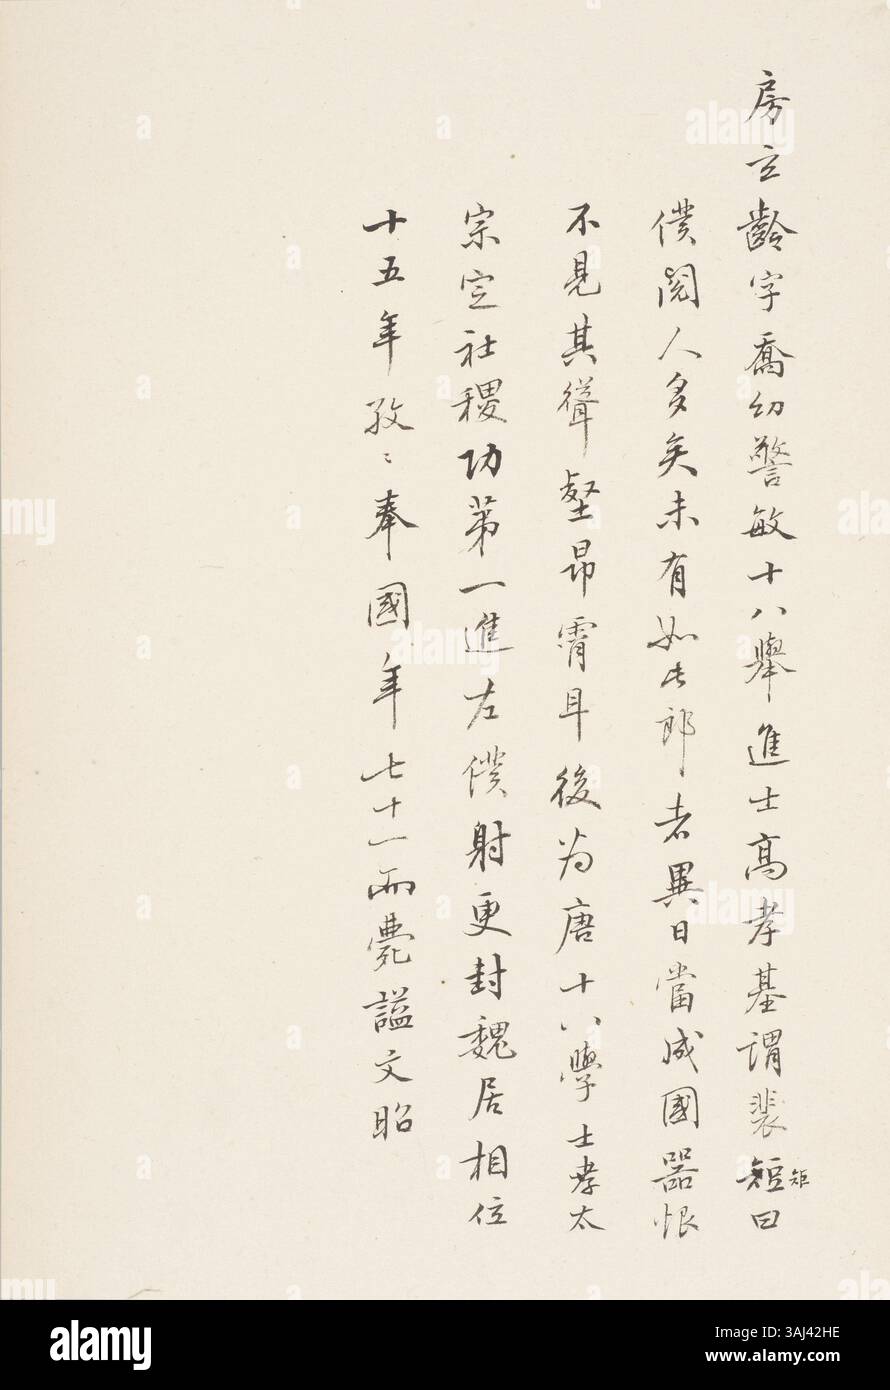 房玄齡字喬幼警敏十八舉進士高孝基謂裴短曰
矩
僕閱人多矣未有如此郎者異日當成國器恨
不見其聳壑昂霄耳後为唐十八學士孝太
宗定社稷功第一進左僕射更封魏居相位
十五年孜〻奉國年七十一而薨謚文昭
alamy
Image ID: 3AJ42HE
www.alamy.com